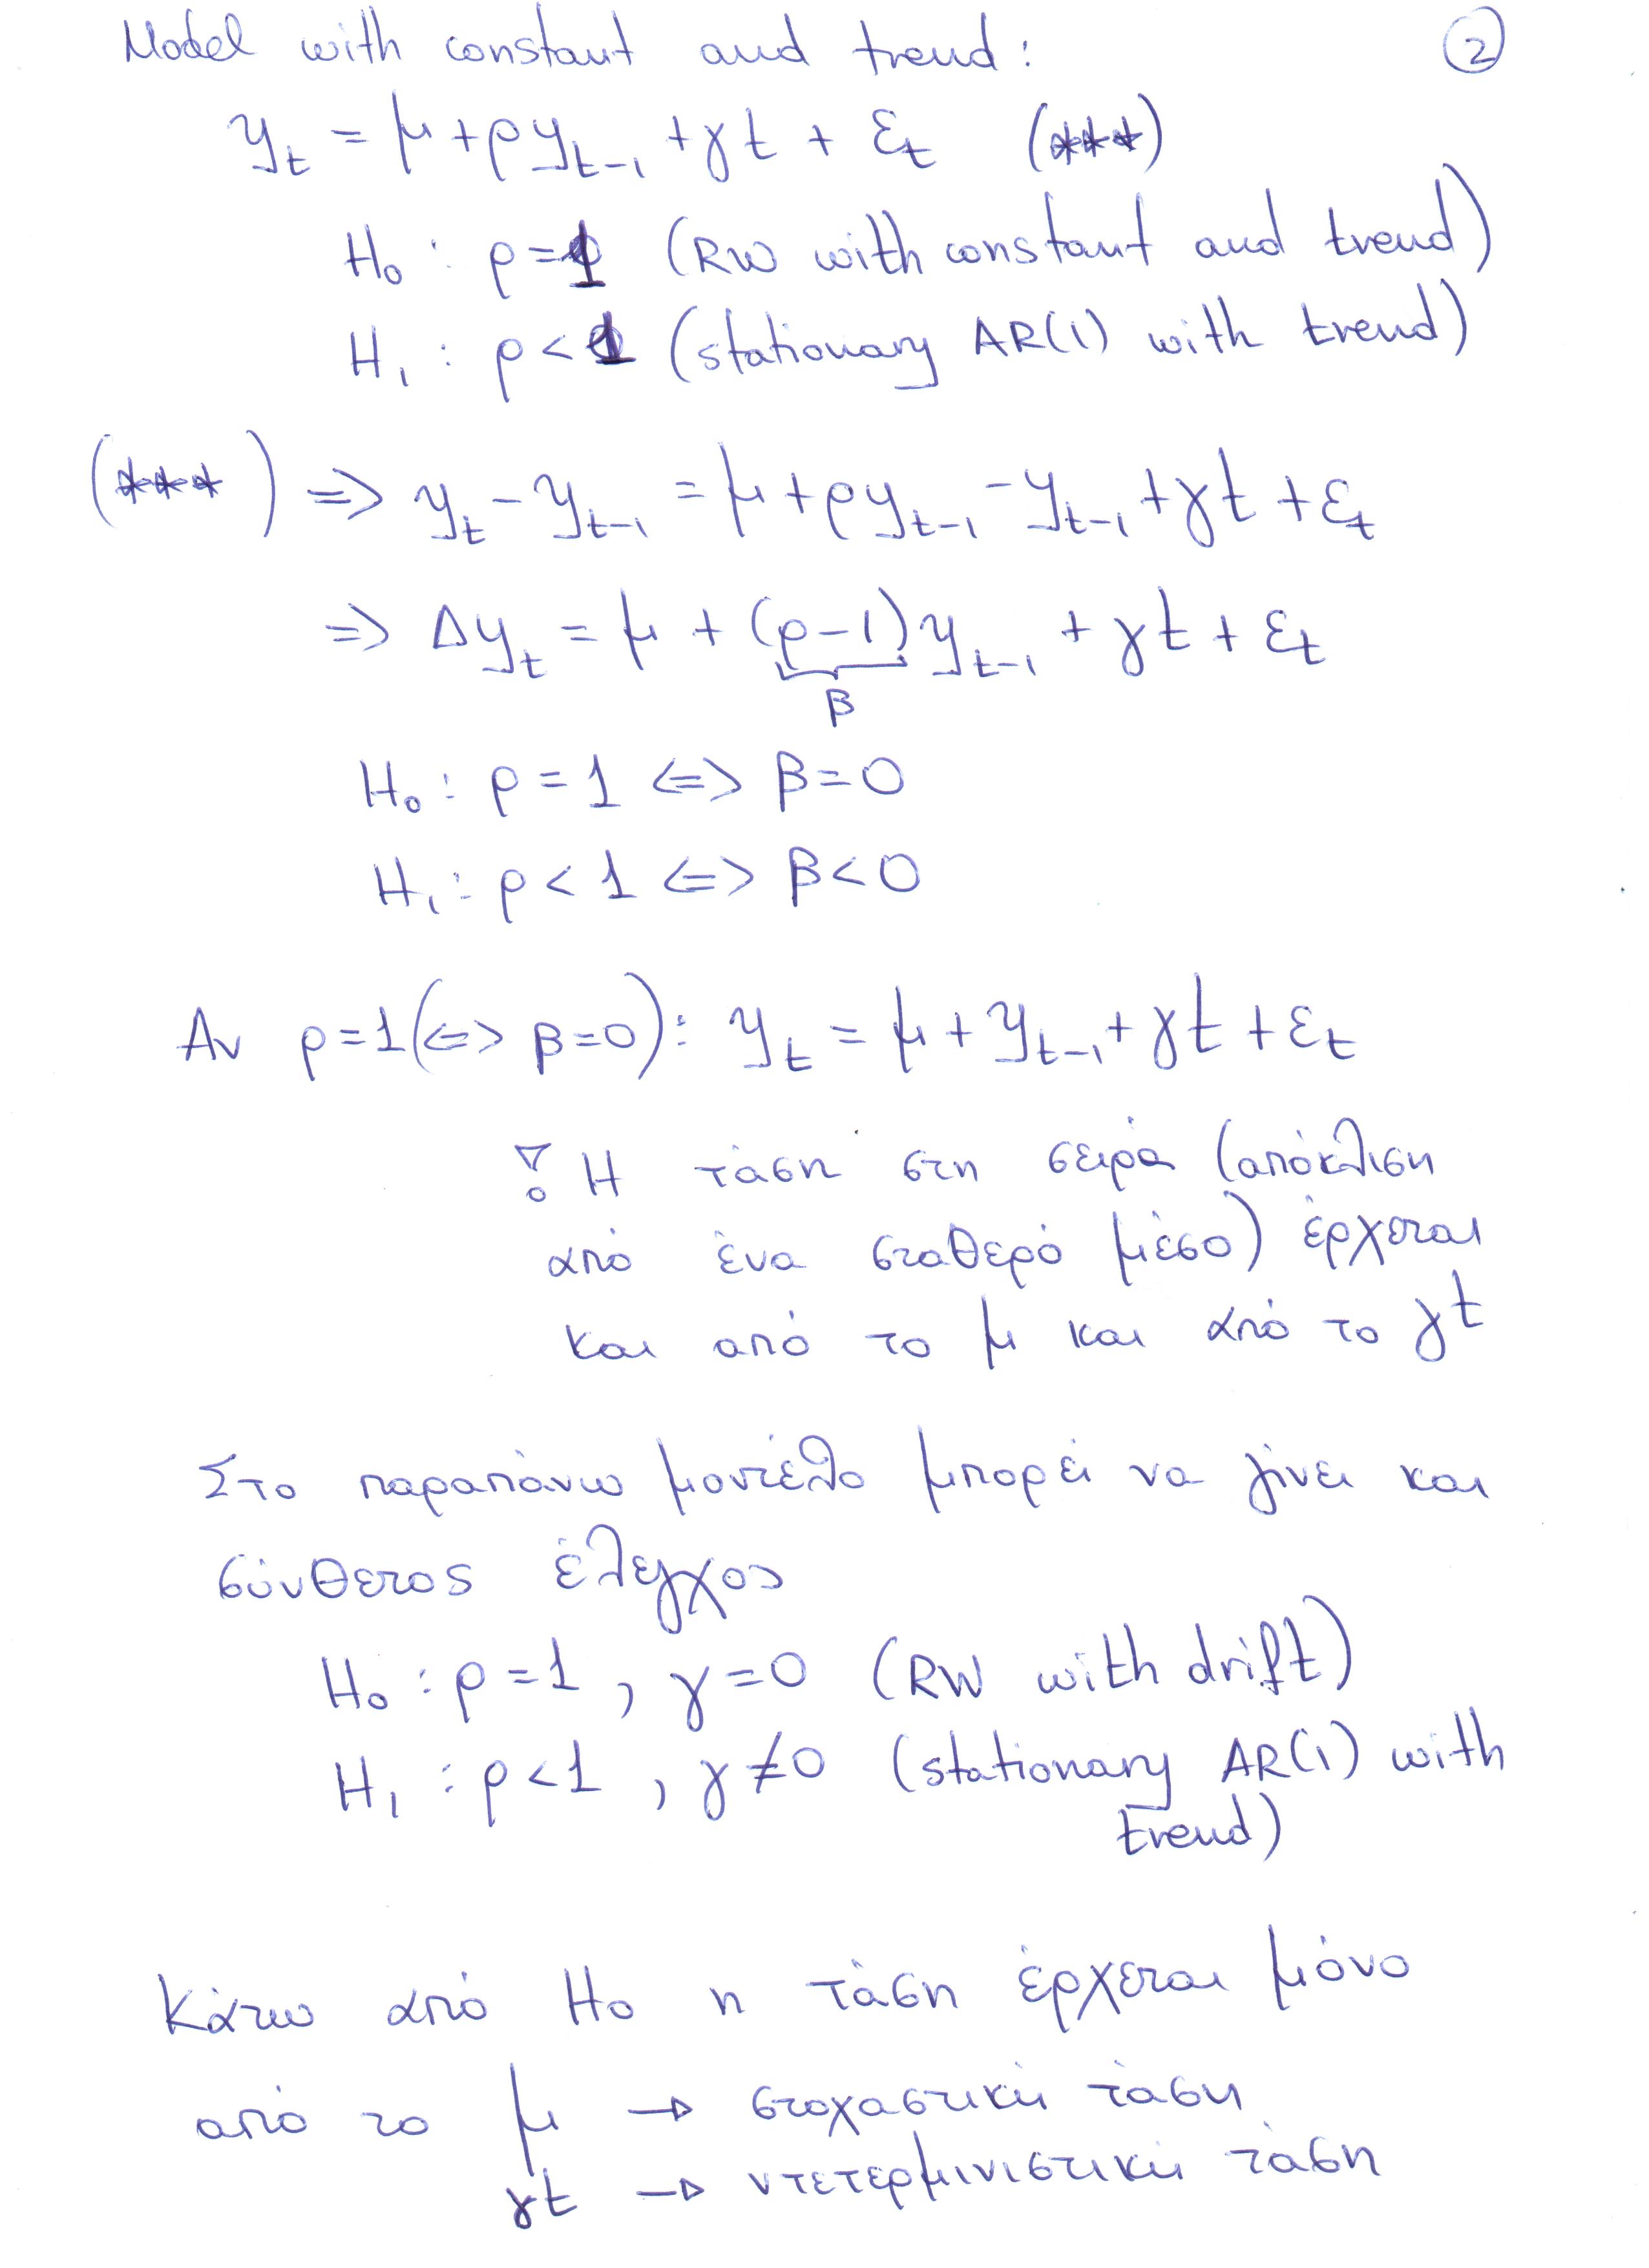 Model with constant and trend: (2)
y_t = μ + ρy_{t-1} + γt + ε_t (***)
H_0 : ρ=1 (RW with constant and trend)
H_1 : ρ<1 (stationary AR(1) with trend)
(***) => y_t - y_{t-1} = μ + ρy_{t-1} - y_{t-1} + γt + ε_t
=> Δy_t = μ + (ρ-1)y_{t-1} + γt + ε_t
β
H_0 : ρ=1 <=> β=0
H_1 : ρ<1 <=> β<0
Αν ρ=1 (<=> β=0): y_t = μ + y_{t-1} + γt + ε_t
! Η τάση στη σειρά (απόκλιση
από ένα σταθερό μέσο) έρχεται
και από το μ και από το γt
Στο παραπάνω μοντέλο μπορεί να γίνει και
σύνθετος έλεγχος
H_0 : ρ=1 , γ=0 (RW with drift)
H_1 : ρ<1 , γ≠0 (stationary AR(1) with
trend)
Κάτω από H_0 η τάση έρχεται μόνο
από το μ → στοχαστική τάση
γt → ντετερμινιστική τάση